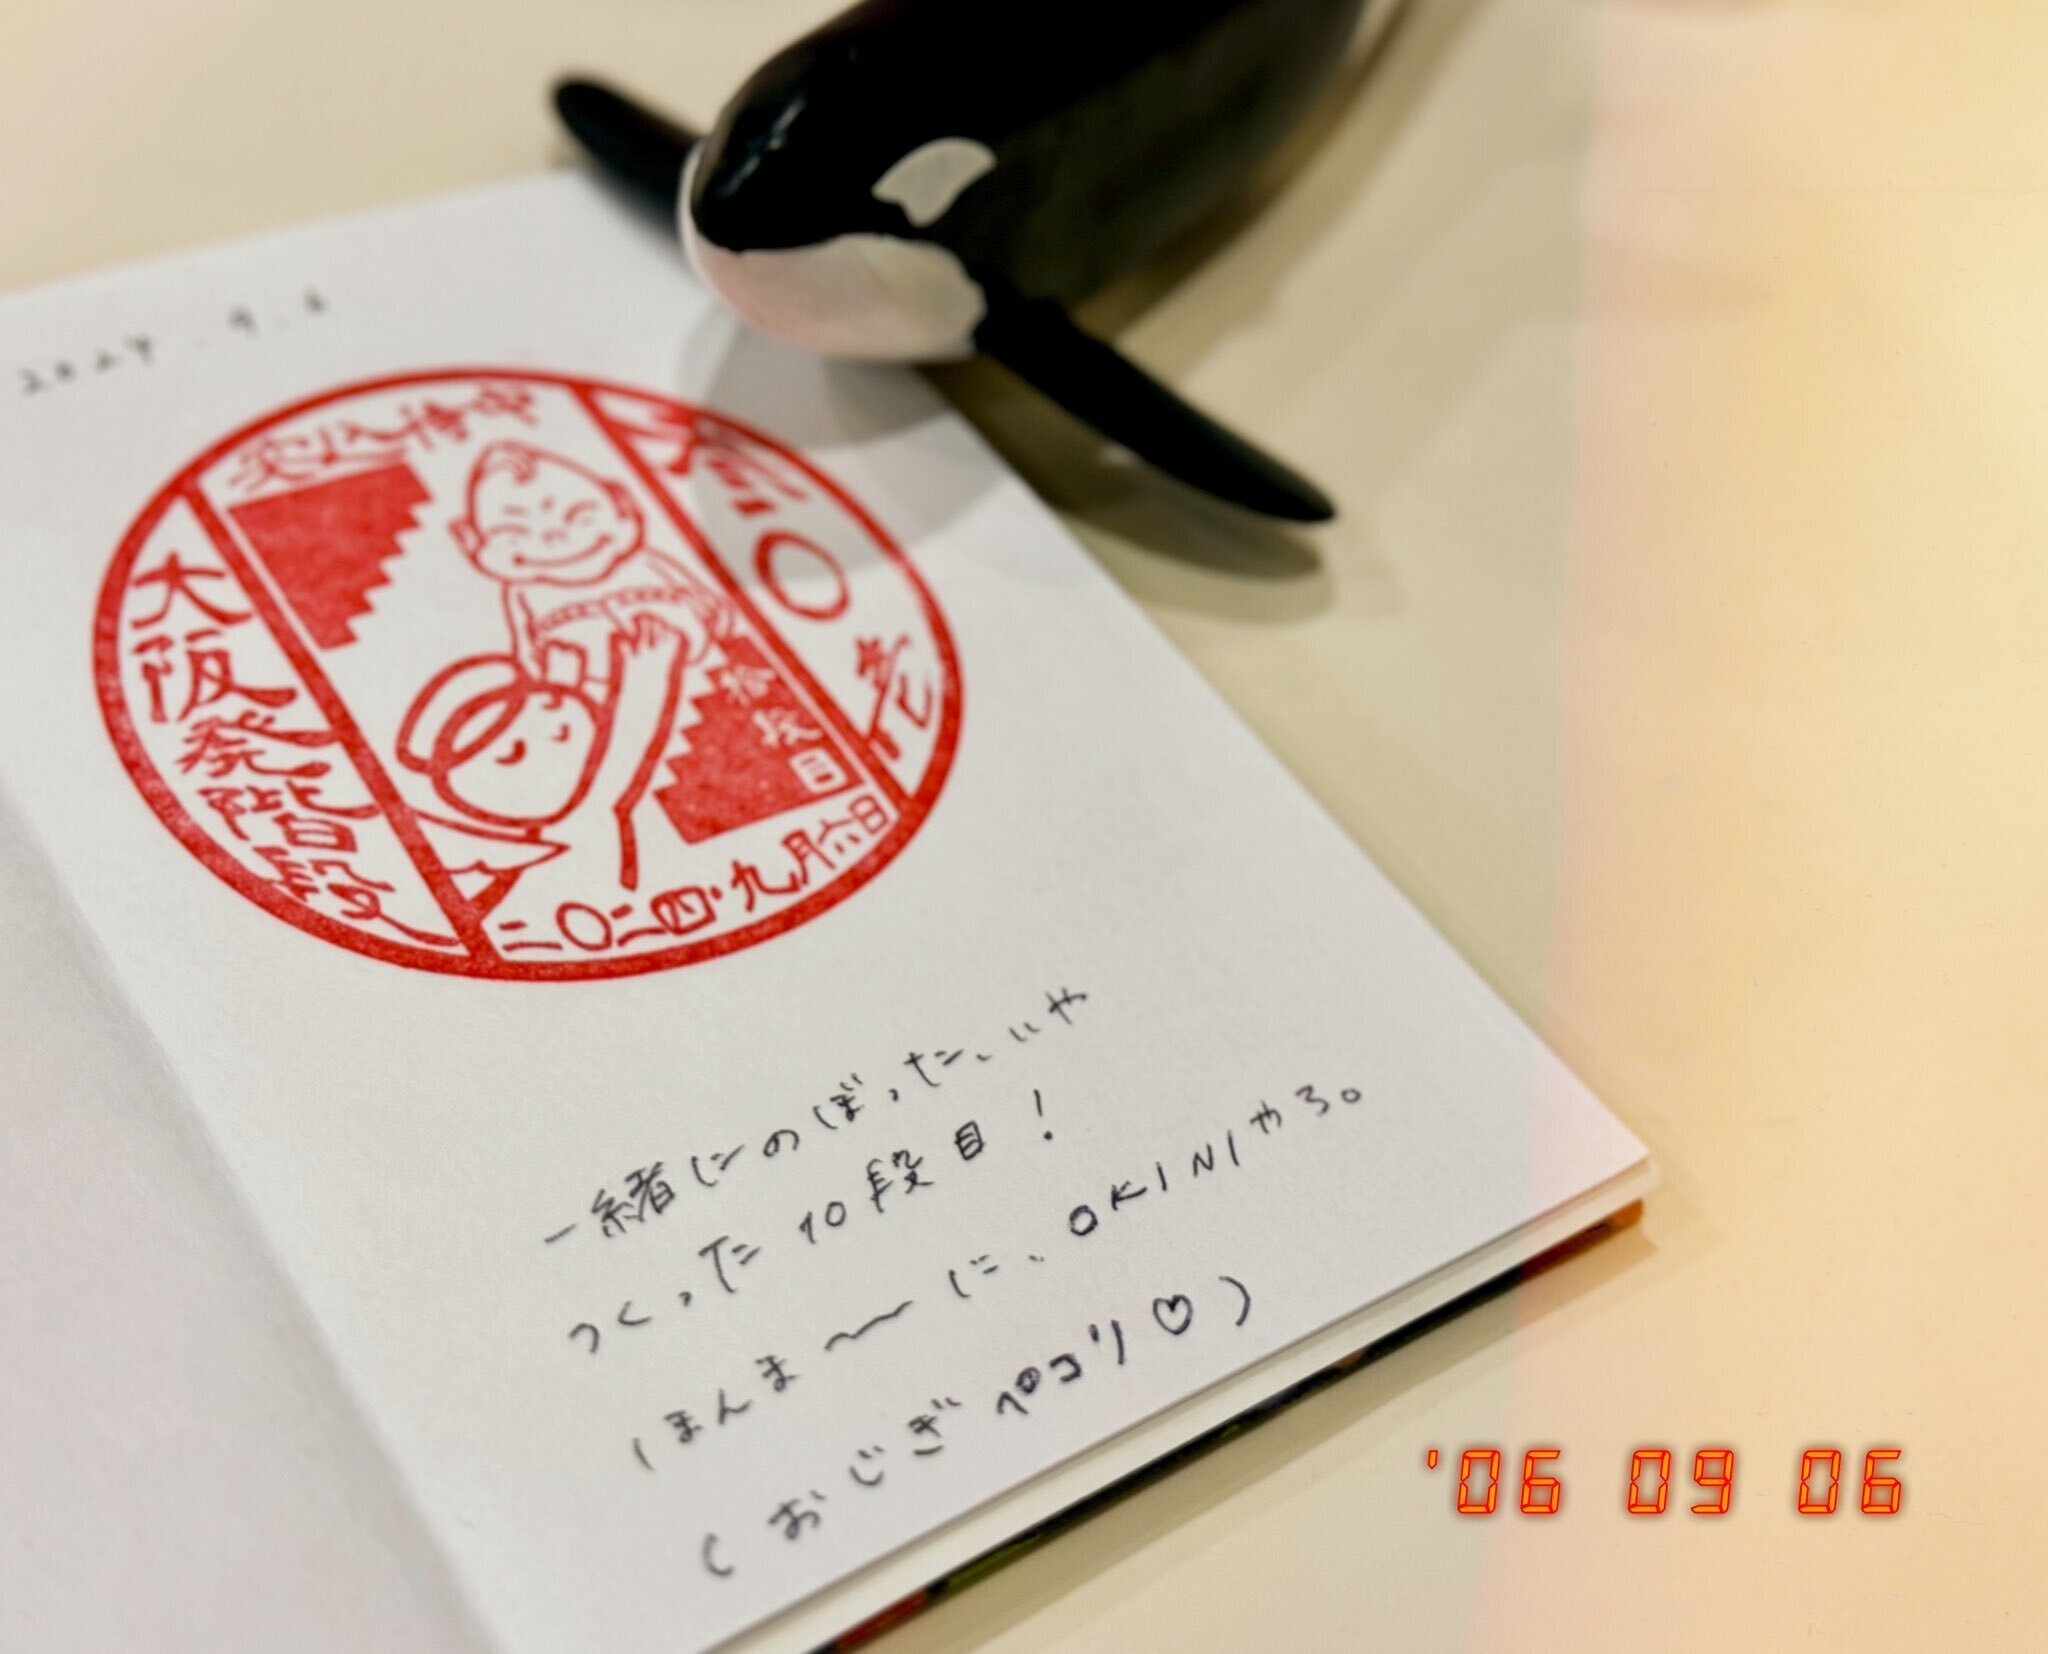 2024.9.6
大阪発階段
拾段目
二〇二四.九月六日
一緒にのぼった、いや
つくった10段目！
ほんま〜に、OKINIやろ。
（おじぎペコリ♡）
'06 09 06